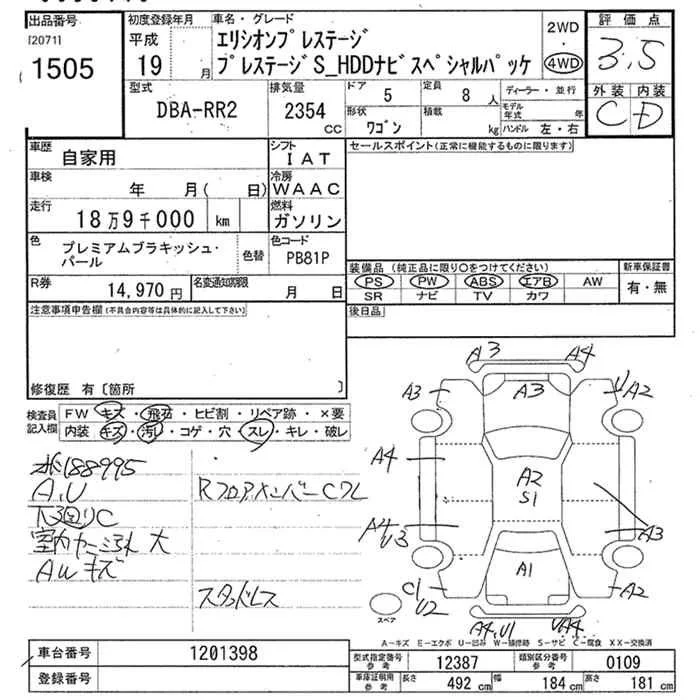 出品番号
[2071]
1505
初度登録年月
平成
19 月
車名・グレード
エリシオンプレステージ
プレステージS_HDDナビスペシャルパッケ
2WD
・
4WD
評価点
3.5
外装 内装
C D
型式
DBA-RR2
排気量
2354
CC
ドア
5
定員
8 人
形状
ワゴン
積載
kg
ディーラー・並行
モデル年式 年
ハンドル 左・右
車歴
自家用
シフト
IAT
車検
年 月( 日)
冷房
WAAC
走行
18万9千000 km
燃料
ガソリン
色
プレミアムブラキッシュ・
パール
色替
色コード
PB81P
R券
14,970 円
名変通知期限
月 日
セールスポイント(正常に機能するものに限ります)
装備品 (純正品に限り○をつけてください)
PS PW ABS エアB AW
SR ナビ TV カワ
新車保証書
有・無
後日品
注意事項申告欄(不具合内容等は具体的に記入して下さい)
修復歴 有〔箇所 〕
検査員
記入欄
FW キズ・飛石・ヒビ割・リペア跡・×要
内装 キズ・汚れ・コゲ・穴・スレ・キレ・破レ
188995
A,U
下回りC
大
AWキズ
RフロアメンバーCワレ
スタッドレス
A3 A4
A3 A3 U A2
A4
A2
S1
A4
U3
A3
A1
C1
U2
A2
A4,U1 UA4
スペア
A-キズ E-エクボ U-凹み W-補修跡 S-サビ C-腐食 XX-交換済
車台番号
1201398
登録番号
型式指定番号
参考
12387
類別区分番号
参考
0109
車庫証明用
参考
長さ 492 cm 幅 184 cm 高さ 181 cm